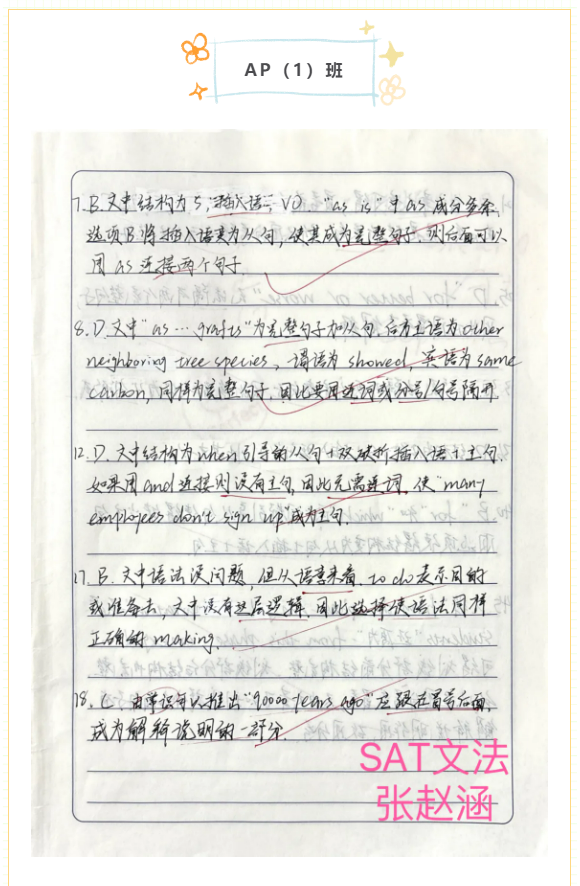 AP（1）班
7. B. 文中结构为 S, 插入语, VO. "as is" 中 as 成分多余,
选项B将插入语变为从句, 使其成为完整句子 则后面可以
用 as 连接两个句子
8. D. 文中 "as … grafts" 为完整句子加从句, 后方主语为 other
neighboring tree species, 谓语为 showed, 宾语为 same
carbon, 同样为完整句子, 因此要用连词或分号/句号隔开
12. D. 文中结构为when引导的从句+双破折插入语+主句
如果用and连接则没有主句, 因此无需连词, 使 "many
employees don't sign up" 成为主句.
17. B. 文中语法没问题, 但从语意来看, to do 表示目的
或准备去, 文中没有这层逻辑. 因此选择使语法同样
正确的 making.
18. C. 由常识可以推出 "90000 years ago" 应跟在冒号后面,
成为解释说明的一部分.
SAT文法
张赵涵